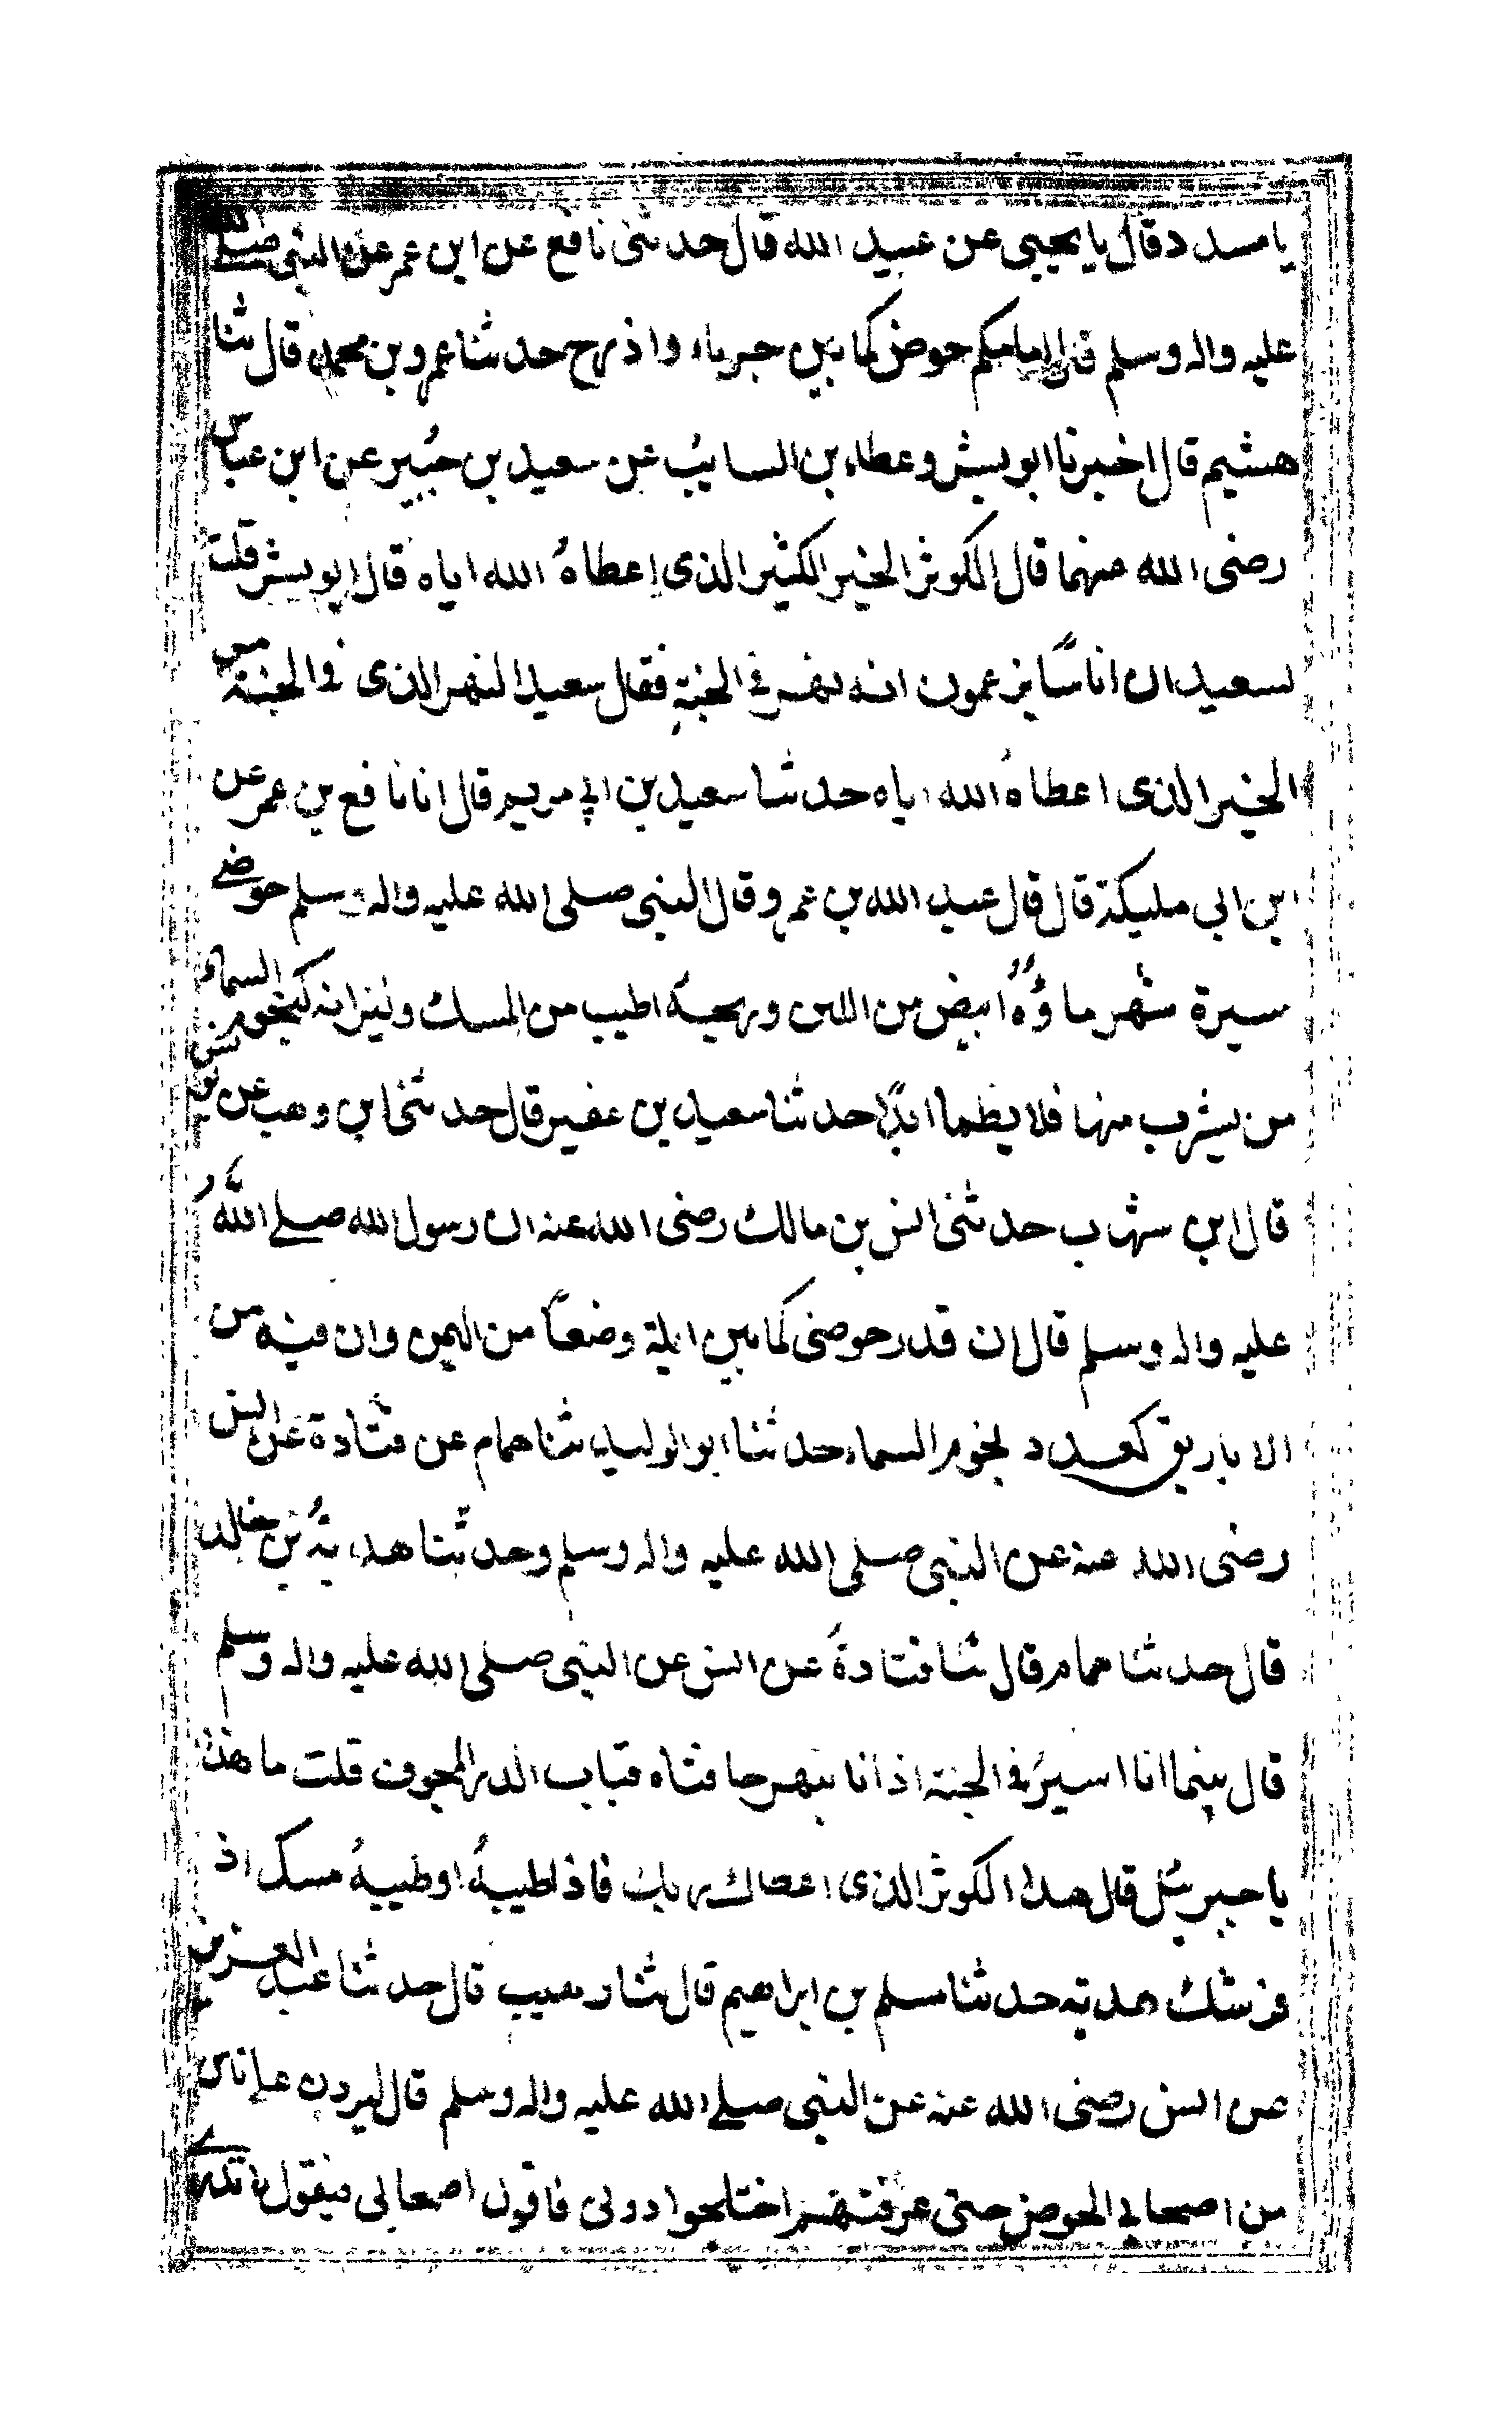 يا مسدد قال يا يحيى عن عبيد الله قال حدثنى نافع عن ابن عمر عن النبى صلى الله
عليه واله وسلم قال امامكم حوض كما بين جرباء واذرح حدثنا عمرو بن محمد قال ثنا
هشيم قال اخبرنا ابو بشر وعطاء بن السايب عن سعيد بن جبير عن ابن عباس
رضى الله عنهما قال الكوثر الخير الكثير الذى اعطاهُ الله اياه قال ابو بشر قلت
لسعيد ان اناسًا يزعمون انه نهر فى الجنة فقال سعيد النهر الذى فى الجنة من
الخير الذى اعطاهُ الله اياه حدثنا سعيد بن ابى مريم قال انا نافع بن عمر عن
ابن ابى مليكة قال قال عبد الله بن عمرو قال النبى صلى الله عليه واله وسلم حوضے
مسيرة شهر ماؤُهُ ابيض من اللبن وريحه اطيب من المسك وكيزانه كنجوم السماء
من يشرب منها فلا يظما ابدًا حدثنا سعيد بن عفير قال حدثنى ابن وهب عن يونس
قال ابن شهاب حدثنى انس بن مالك رضى الله عنه ان رسول الله صلے الله
عليه واله وسلم قال ان قدر حوضى كما بين ايلة وصنعا من اليمن وان فيه من
الاباريق كعدد نجوم السماء حدثنا ابو الوليد ثنا همام عن قتادة عن انس
رضى الله عنه عن النبى صلى الله عليه واله وسلم وحدثنا هدبةُ بن خالد
قال حدثنا همام قال ثنا قتادةُ عن انس عن النبى صلى الله عليه واله وسلم
قال بينما انا اسيرُ فى الجنة اذ انا بنهر حافتاه قباب الدر المجوف قلت ما هذا
يا جبريئل قال هذا الكوثر الذى اعطاك ربك فاذا طيبهُ او طينهُ مسك اذ
فر شك هدبه حدثنا مسلم بن ابراهيم قال ثنا وهيب قال حدثنا عبد العزيز
عن انس رضى الله عنه عن النبى صلے الله عليه واله وسلم قال ليردن علے ناس
من اصحابى الحوض حتى عرفتهم اختلجوا دونى فاقول اصحابى فيقول لا تدرے